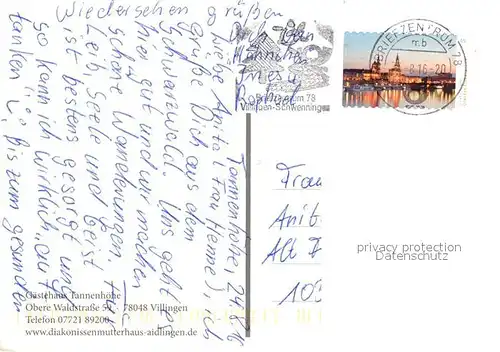 Tannenhöhe, 24.8.16
Liebe Anita (Frau Henne), ich
grüße Dich aus dem
Schwarzwald. Uns geht's
hier gut und wir machen
schöne Wanderungen. Für
Leib, Seele und Geist
ist bestens gesorgt und
so kann ich wirklich "auf-
tanken". Bis zum gesunden
Wiedersehen grüßen
BRIEFZENTRUM 78
mb
8.16-20
Briefzentrum 78
Villingen-Schwenningen
Frau
Anit
Alt
103
privacy protection
Datenschutz
Gästehaus Tannenhöhe
Obere Waldstraße 59 · 78048 Villingen
Telefon 07721 89200
www.diakonissenmutterhaus-aidlingen.de